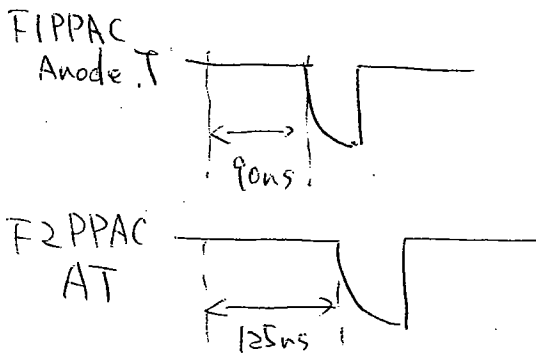 F1PPAC
Anode.T
90ns
F2PPAC
AT
125ns